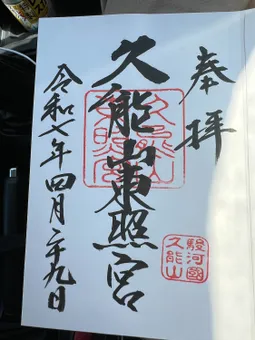 奉拝
久能山東照宮
令和七年四月二十九日
駿河國
久能山